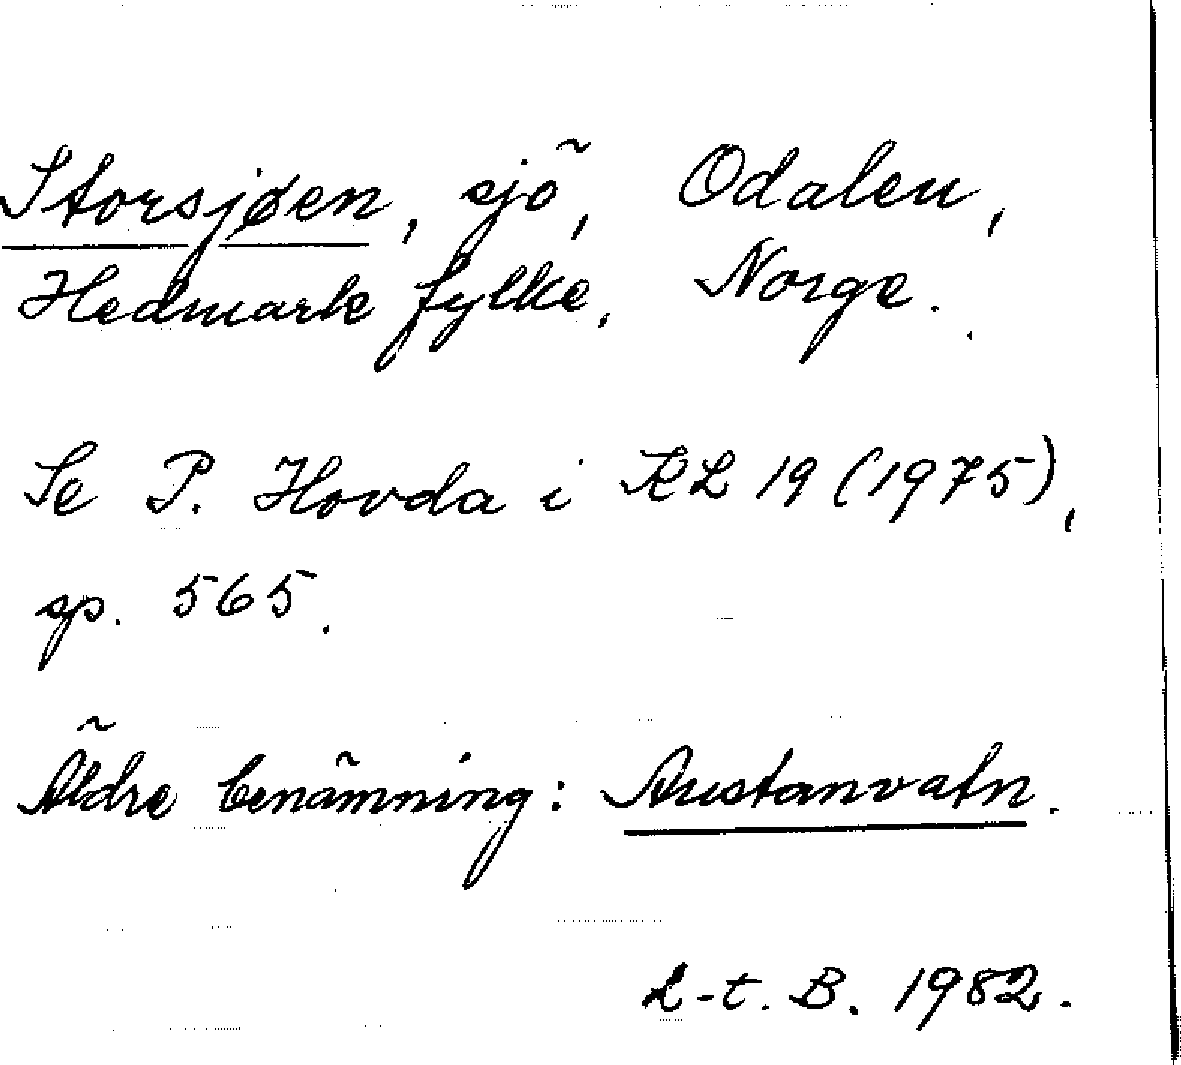 Storsjøen, sjö, Odalen,
Hedmark fylke, Norge.
Se P. Hovda i KL 19 (1975),
sp. 565.
Äldre benämning: Austanvatn.
L-t. B. 1982.